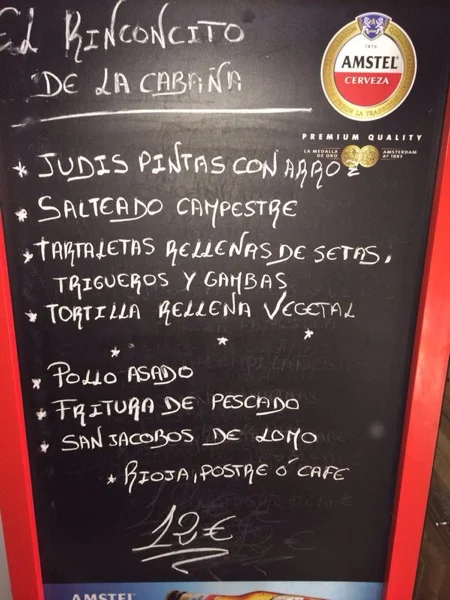 EL RINCONCITO
DE LA CABAÑA
1870
AMSTEL
CERVEZA
PREMIUM QUALITY
LA MEDALLA
DE ORO
AMSTERDAM
Aº 1883
* JUDIS PINTAS CON ARROZ
* SALTEADO CAMPESTRE
* TARTALETAS RELLENAS DE SETAS,
TRIGUEROS Y GAMBAS
* TORTILLA RELLENA VEGETAL
* * *
* POLLO ASADO
* FRITURA DE PESCADO
* SANJACOBOS DE LOMO
* RIOJA, POSTRE Ó CAFE
12€
AMSTEL